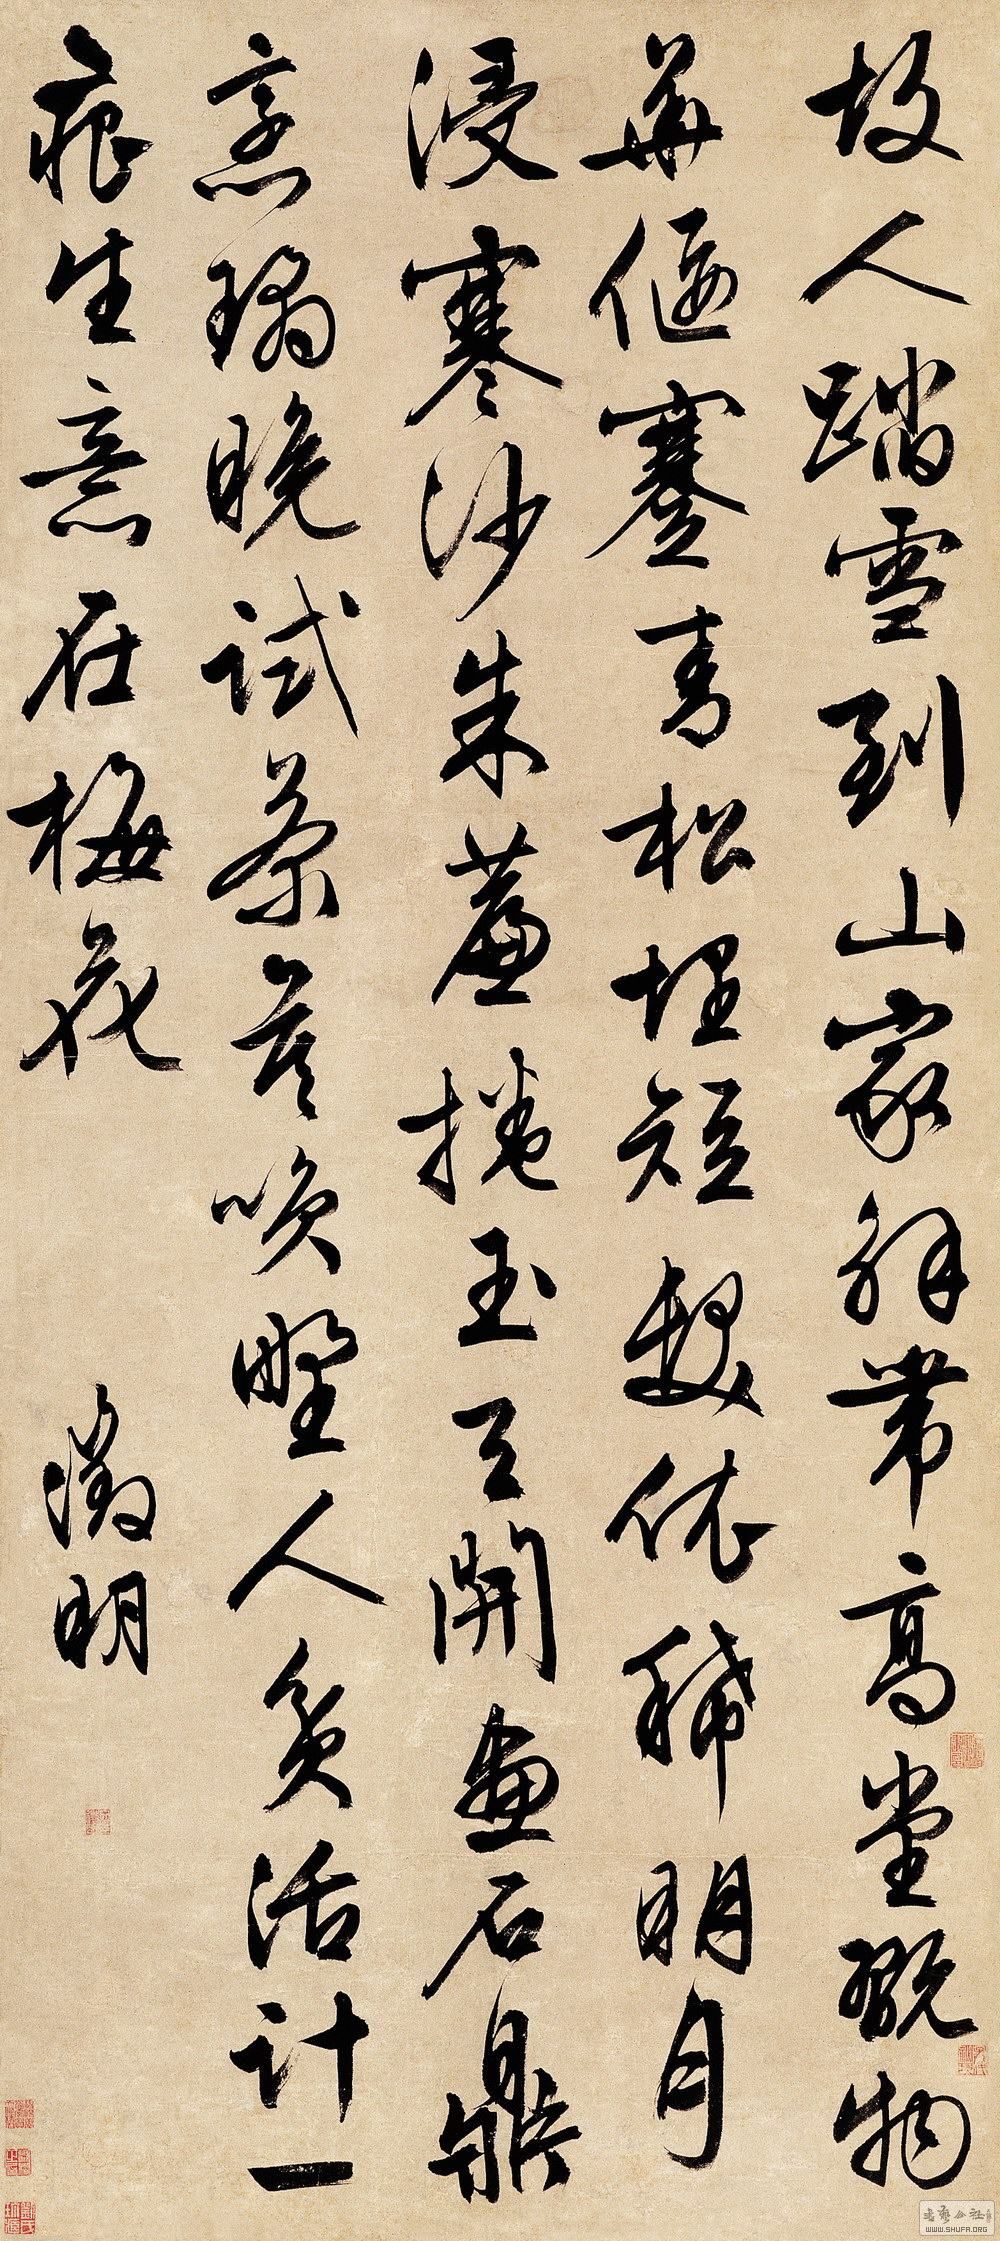 故人踏雪到山家解帶高堂覽物
華偃蹇青松埋短髮依稀明月
浸寒沙朱簾捲玉天開畫石鼎
烹璚晚試茶莫咲野人貧活計一
痕生意在梅花
徵明
书艺公社
WWW.SHUFA.ORG